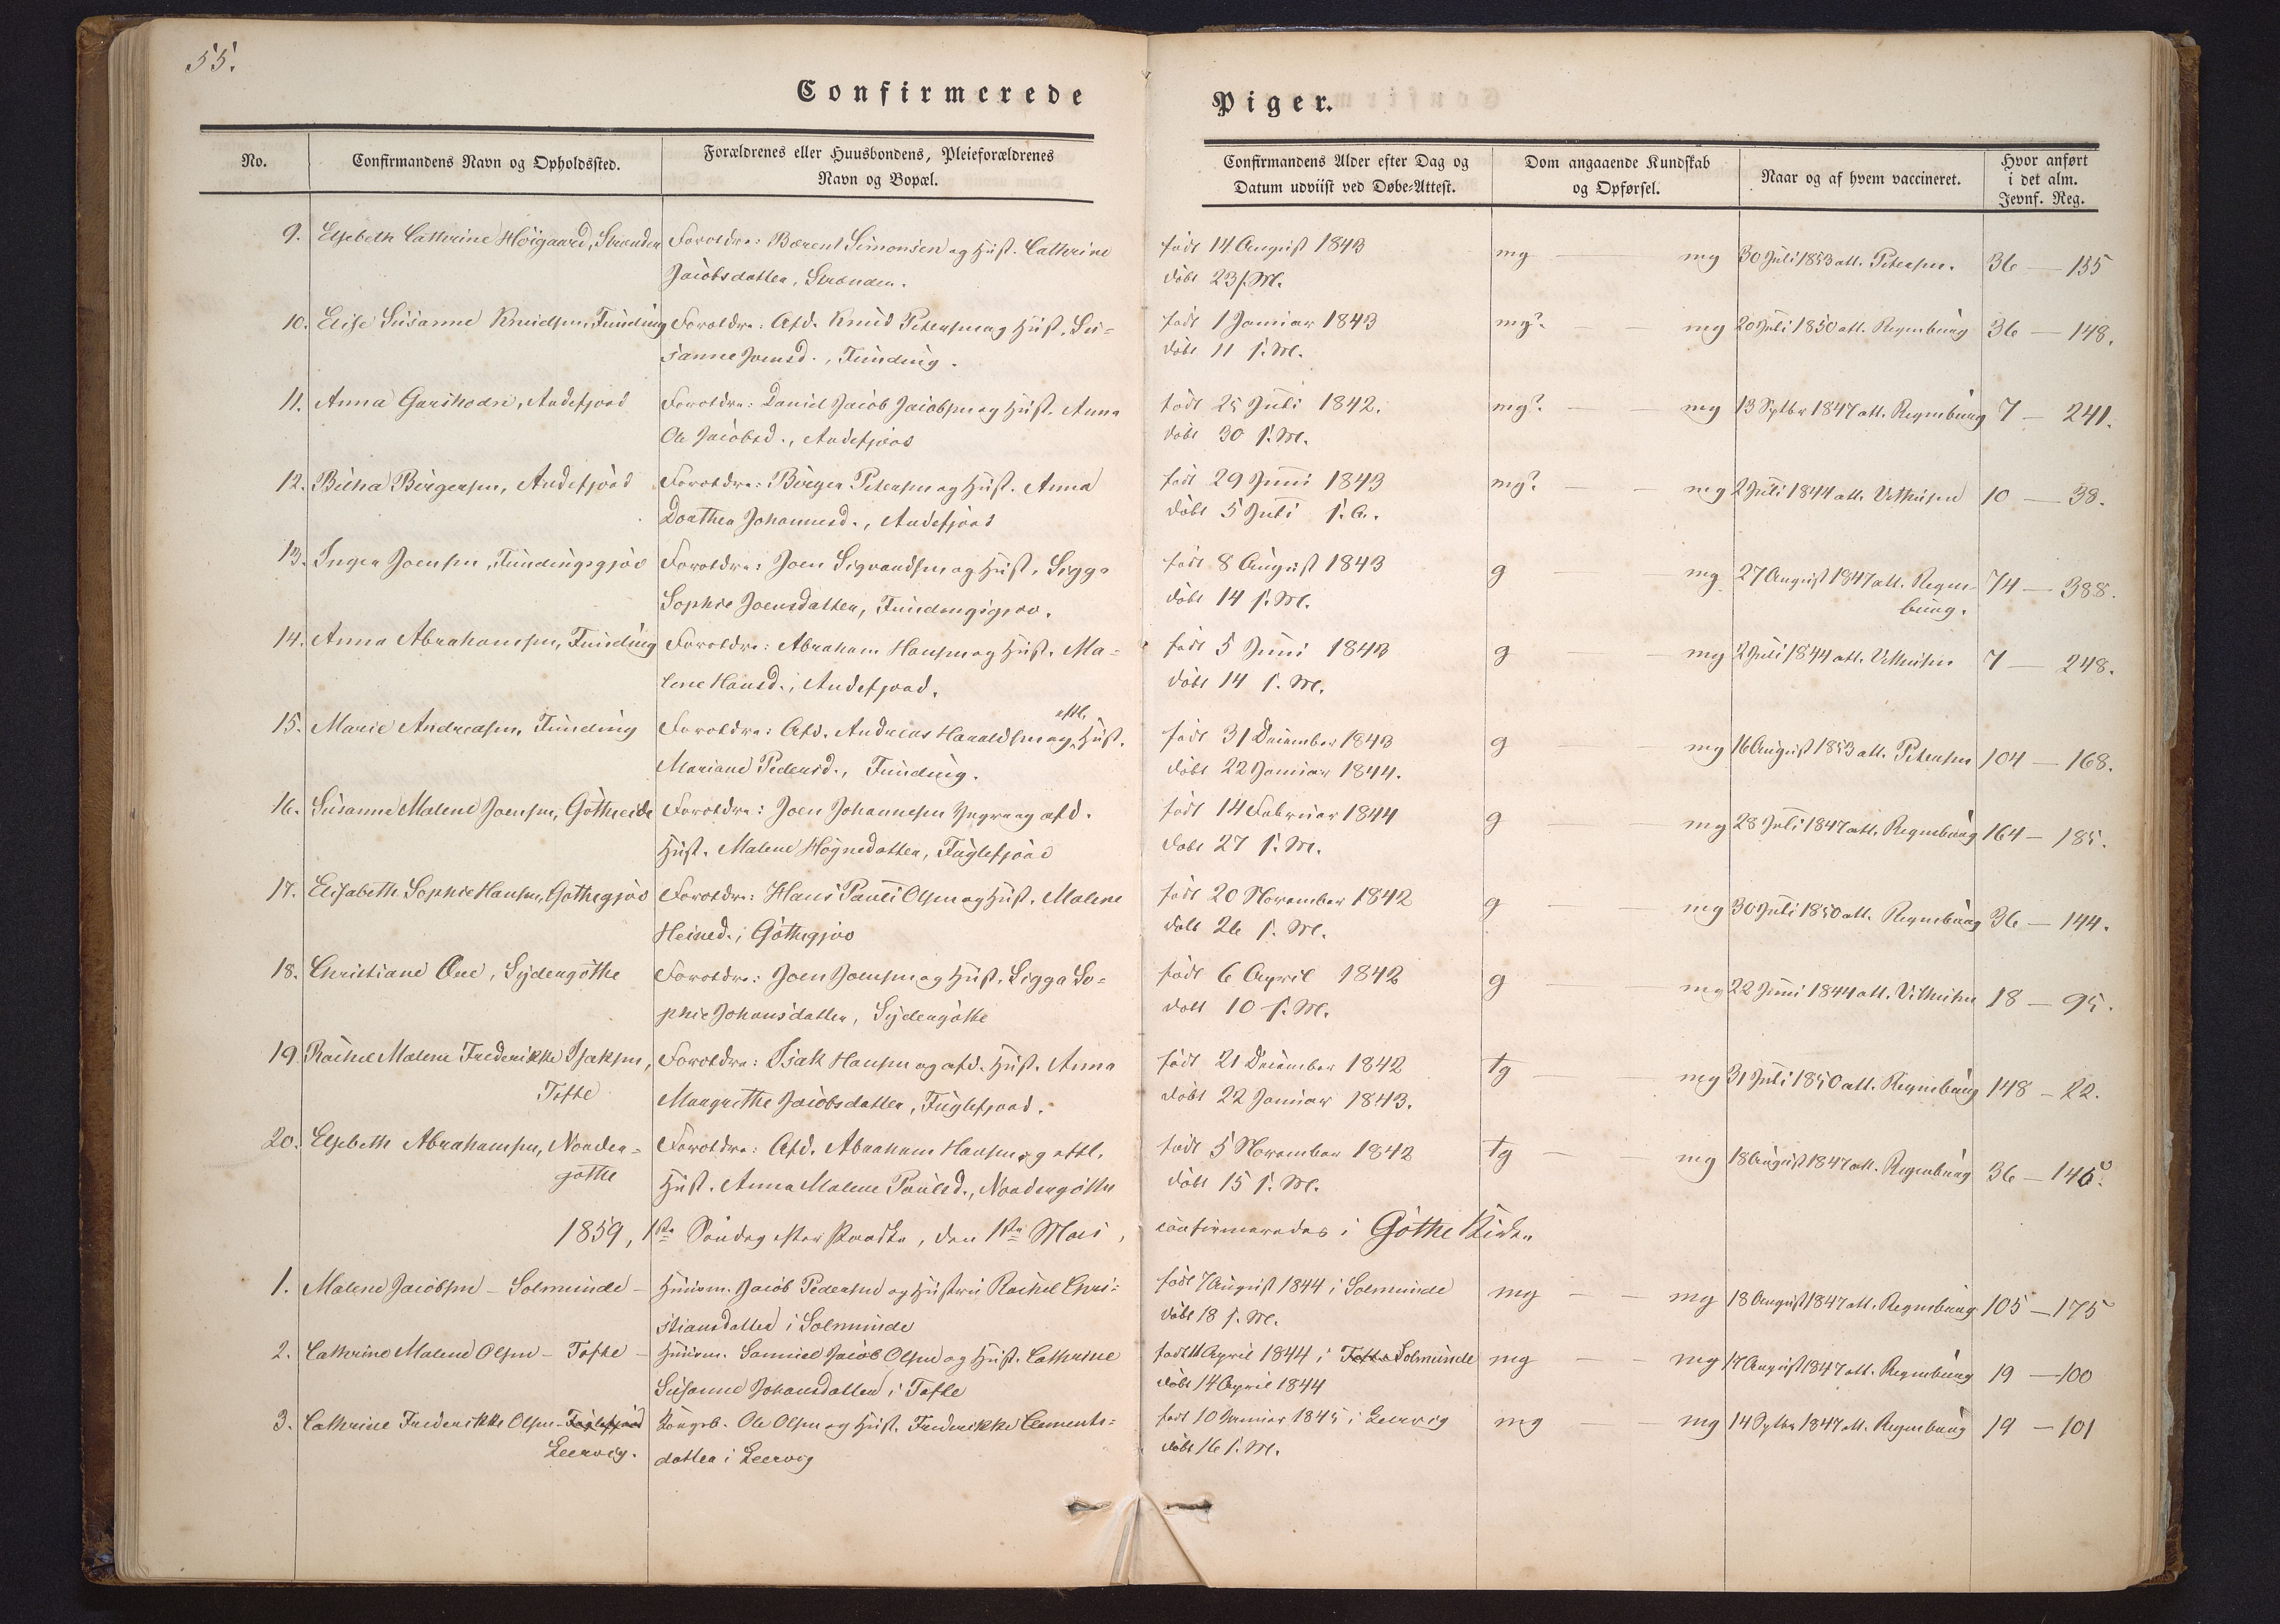 55.
Confirmerede Piger.
No.
Confirmandens Navn og Opholdssted.
Forældrenes eller Huusbondens, Pleieforældrenes
Navn og Bopæl.
Confirmandens Alder efter Dag og
Datum udviist ved Døbe-Attest.
Dom angaaende Kundskab
og Opførsel.
Naar og af hvem vaccineret.
Hvor anført
i det alm.
Jevnf. Reg.
9. Elsebeth Cathrine Höigaard, Strænder Forældre: Bærent Simonsen og Hust. Cathrine født 14 August 1843 mg mg 30 Juli 1853 att. Petersen. 36 — 155
Jacobsdatter, Strænder. døbt 23 s. M.
10. Elise Susanne Knudsen, Funding Forældre: Afd. Knud Petersen og Hust. Su- født 1 Januar 1843 mg? mg 20 Juli 1850 att. Regenburg 36 — 148.
sanne Joensd., Funding. døbt 11 s. M.
11. Anna Andefjord Forældre: Daniel Jacob Jacobsen og Hust. Anna født 25 Juli 1842. mg? mg 13 Septbr 1847 att. Regenburg 7 — 241.
Ol. Jacobsd., Andefjord døbt 30 s. M.
12. Birgersen, Andefjord Forældre: Birger Petersen og Hust. Anna født 29 Juni 1843 mg? mg 2 Juli 1844 att. 10 — 38.
Dorthea Johannesd., Andefjord døbt 5 Juli s. A.
13. Inger Joensen, Fundingsgjov Forældre: Joen Sigvardsen og Hust. Sigga født 8 August 1843 g mg 27 August 1847 att. Regen- 74 — 388.
burg.
Sophie Joensdatter, Fundingsgjov. døbt 14 s. M.
14. Anna Abrahamsen, Funding Forældre: Abraham Hansen og Hust. Ma- født 5 Juni 1843 g mg 2 Juli 1844 att. 7 — 248.
lene Hansd., Andefjord. døbt 14 s. M.
15. Marie Andreasen, Funding Forældre: Afd. Andreas Haraldsen og eftl. Hust. født 31 December 1843 g mg 16 August 1853 att. Petersen 104 — 168.
Mariane Pedersd., Funding. døbt 22 Januar 1844.
16. Susanne Malene Joensen, Götheeide Forældre: Joen Johannesen og afd. født 14 Februar 1844 g mg 28 Juli 1847 att. Regenburg 164 — 185.
Hust. Malene Högnedatter, Fuglefjord døbt 27 s. M.
17. Elisabeth Sophie Hansen, Göthegjov Forældre: Hans Pauli Olsen og Hust. Malene født 20 November 1842 g mg 30 Juli 1850 att. Regenburg 36 — 144.
Heined., Göthegjov døbt 26 s. M.
18. Christiane Öre, Sydergöthe Forældre: Joen Joensen og Hust. Sigga So- født 6 April 1842 g mg 22 Juni 1844 att. 18 — 95.
phie Johansdatter, Sydergöthe døbt 10 s. M.
19. Rachel Malene Frederikke Isaksen, Forældre: Isak Hansen og afd. Hust. Anna født 21 December 1842 tg mg 31 Juli 1850 att. Regenburg 148 — 22.
Tofte Margrethe Jacobsdatter, Fuglefjord. døbt 22 Januar 1843.
20. Elsebeth Abrahamsen, Norder- Forældre: Afd. Abraham Hansen og eftl. født 5 November 1842 tg mg 18 August 1847 att. Regenburg 36 — 146.
göthe Hust. Anna Malene Poulsd., Nordergöthe døbt 15 s. M.
1859, 1ste Söndag efter Paaske, den 1ste Mai, confirmeredes i Göthe Kirke
1. Malene Jacobsen – Solmunde – Huusm. Jacob Pedersen og Hustru Rachel Chri- født 7 August 1844 i Solmunde mg mg 18 August 1847 att. Regenburg 105 — 175
stiansdatter i Solmunde døbt 18 s. M.
2. Cathrine Malene Olsen – Tofte – Huusm. Samuel Jacob Olsen og Hust. Cathrine født 11 April 1844 i Tofte Solmunde mg mg 17 August 1847 att. Regenburg 19 — 100
Susanne Johansdatter i Tofte døbt 14 April 1844
3. Cathrine Frederikke Olsen – Fuglefjord Kongsb. Ole Olsen og Hust. Frederikke Clements- født 10 Januar 1845 i Leervig mg mg 14 Septbr 1847 att. Regenburg 19 — 101
Leervig. datter i Leervig døbt 16 s. M.